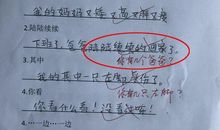 我的妈妈又矮又高又胖又瘦
2.陆陆续续
下班了，爸爸陆陆续续的回来了。
你有几个爸爸？
3.其中
我的其中一只左脚受伤了。
你有几只左脚？
4.你看
你看什么看！没看过呀！
4.一边……一边